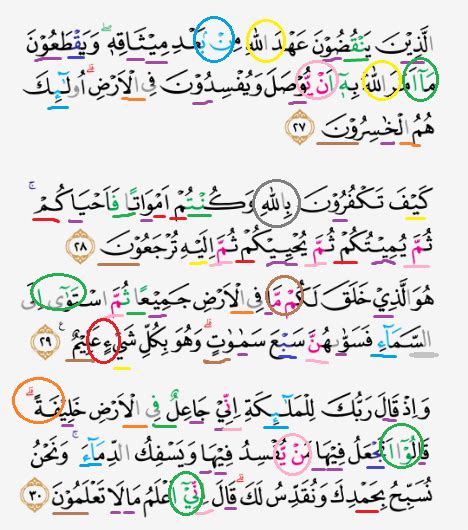 الَّذِيْنَ يَنْقُضُوْنَ عَهْدَ اللّٰهِ مِنْۢ بَعْدِ مِيْثَاقِهٖۖ وَيَقْطَعُوْنَ
مَآ اَمَرَ اللّٰهُ بِهٖٓ اَنْ يُّوْصَلَ وَيُفْسِدُوْنَ فِى الْاَرْضِۗ اُولٰۤىِٕكَ
هُمُ الْخٰسِرُوْنَ ٢٧
كَيْفَ تَكْفُرُوْنَ بِاللّٰهِ وَكُنْتُمْ اَمْوَاتًا فَاَحْيَاكُمْۚ
ثُمَّ يُمِيْتُكُمْ ثُمَّ يُحْيِيْكُمْ ثُمَّ اِلَيْهِ تُرْجَعُوْنَ ٢٨
هُوَ الَّذِيْ خَلَقَ لَكُمْ مَّا فِى الْاَرْضِ جَمِيْعًا ثُمَّ اسْتَوٰٓى اِلَى
السَّمَاۤءِ فَسَوّٰىهُنَّ سَبْعَ سَمٰوٰتٍۗ وَهُوَ بِكُلِّ شَيْءٍ عَلِيْمٌ ࣖ ٢٩
وَاِذْ قَالَ رَبُّكَ لِلْمَلٰۤىِٕكَةِ اِنِّيْ جَاعِلٌ فِى الْاَرْضِ خَلِيْفَةًۗ
قَالُوْٓا اَتَجْعَلُ فِيْهَا مَنْ يُّفْسِدُ فِيْهَا وَيَسْفِكُ الدِّمَاۤءَۚ وَنَحْنُ
نُسَبِّحُ بِحَمْدِكَ وَنُقَدِّسُ لَكَۗ قَالَ اِنِّيْٓ اَعْلَمُ مَا لَا تَعْلَمُوْنَ ٣٠